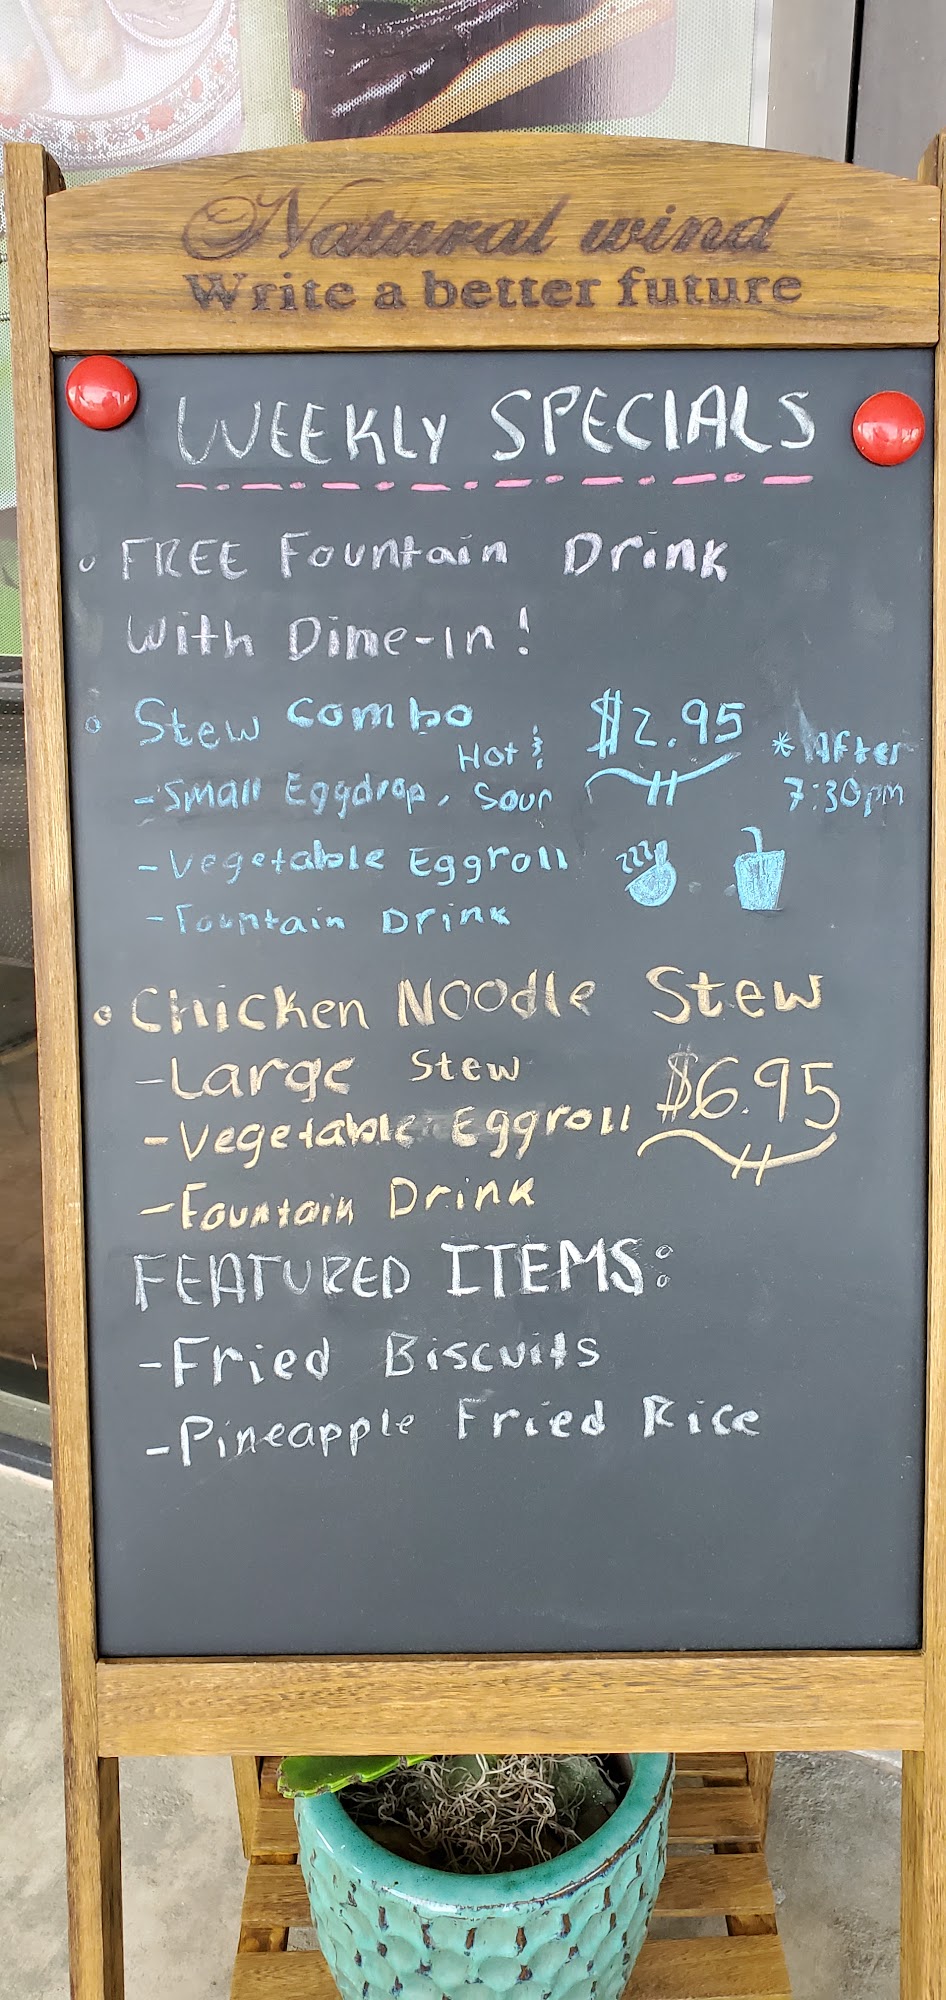 Natural wind
Write a better future
WEEKLY SPECIALS
FREE Fountain Drink
With Dine-In!
Stew Combo $2.95 * After 7:30pm
- Small Eggdrop, Hot & Sour
- Vegetable Eggroll
- Fountain Drink
Chicken Noodle Stew
- Large Stew $6.95
- Vegetable Eggroll
- Fountain Drink
FEATURED ITEMS:
- Fried Biscuits
- Pineapple Fried Rice